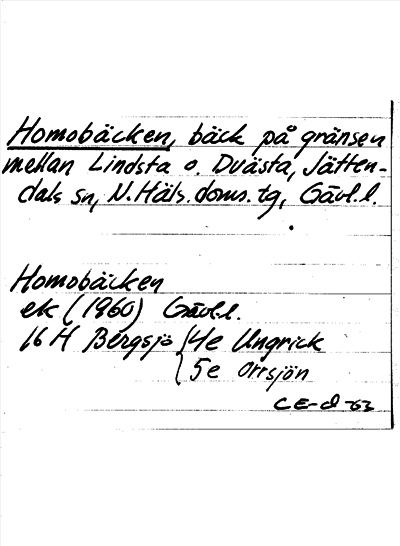 Homobäcken, bäck på gränsen
mellan Lindsta o. Dvästa, Jätten-
dals sn, N. Häls. doms. tg, Gävl. l.
Homobäcken
ek (1960) Gävl.l.
16 H Bergsjö { 4e Ungrick
{ 5e Orrsjön
CE-d -63